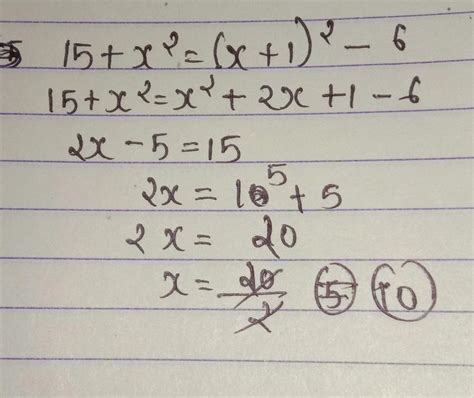 15 + x² = (x + 1)² - 6
15 + x² = x² + 2x + 1 - 6
2x - 5 = 15
2x = 10⁵ + 5
2x = 20
x = 20/2 5 10